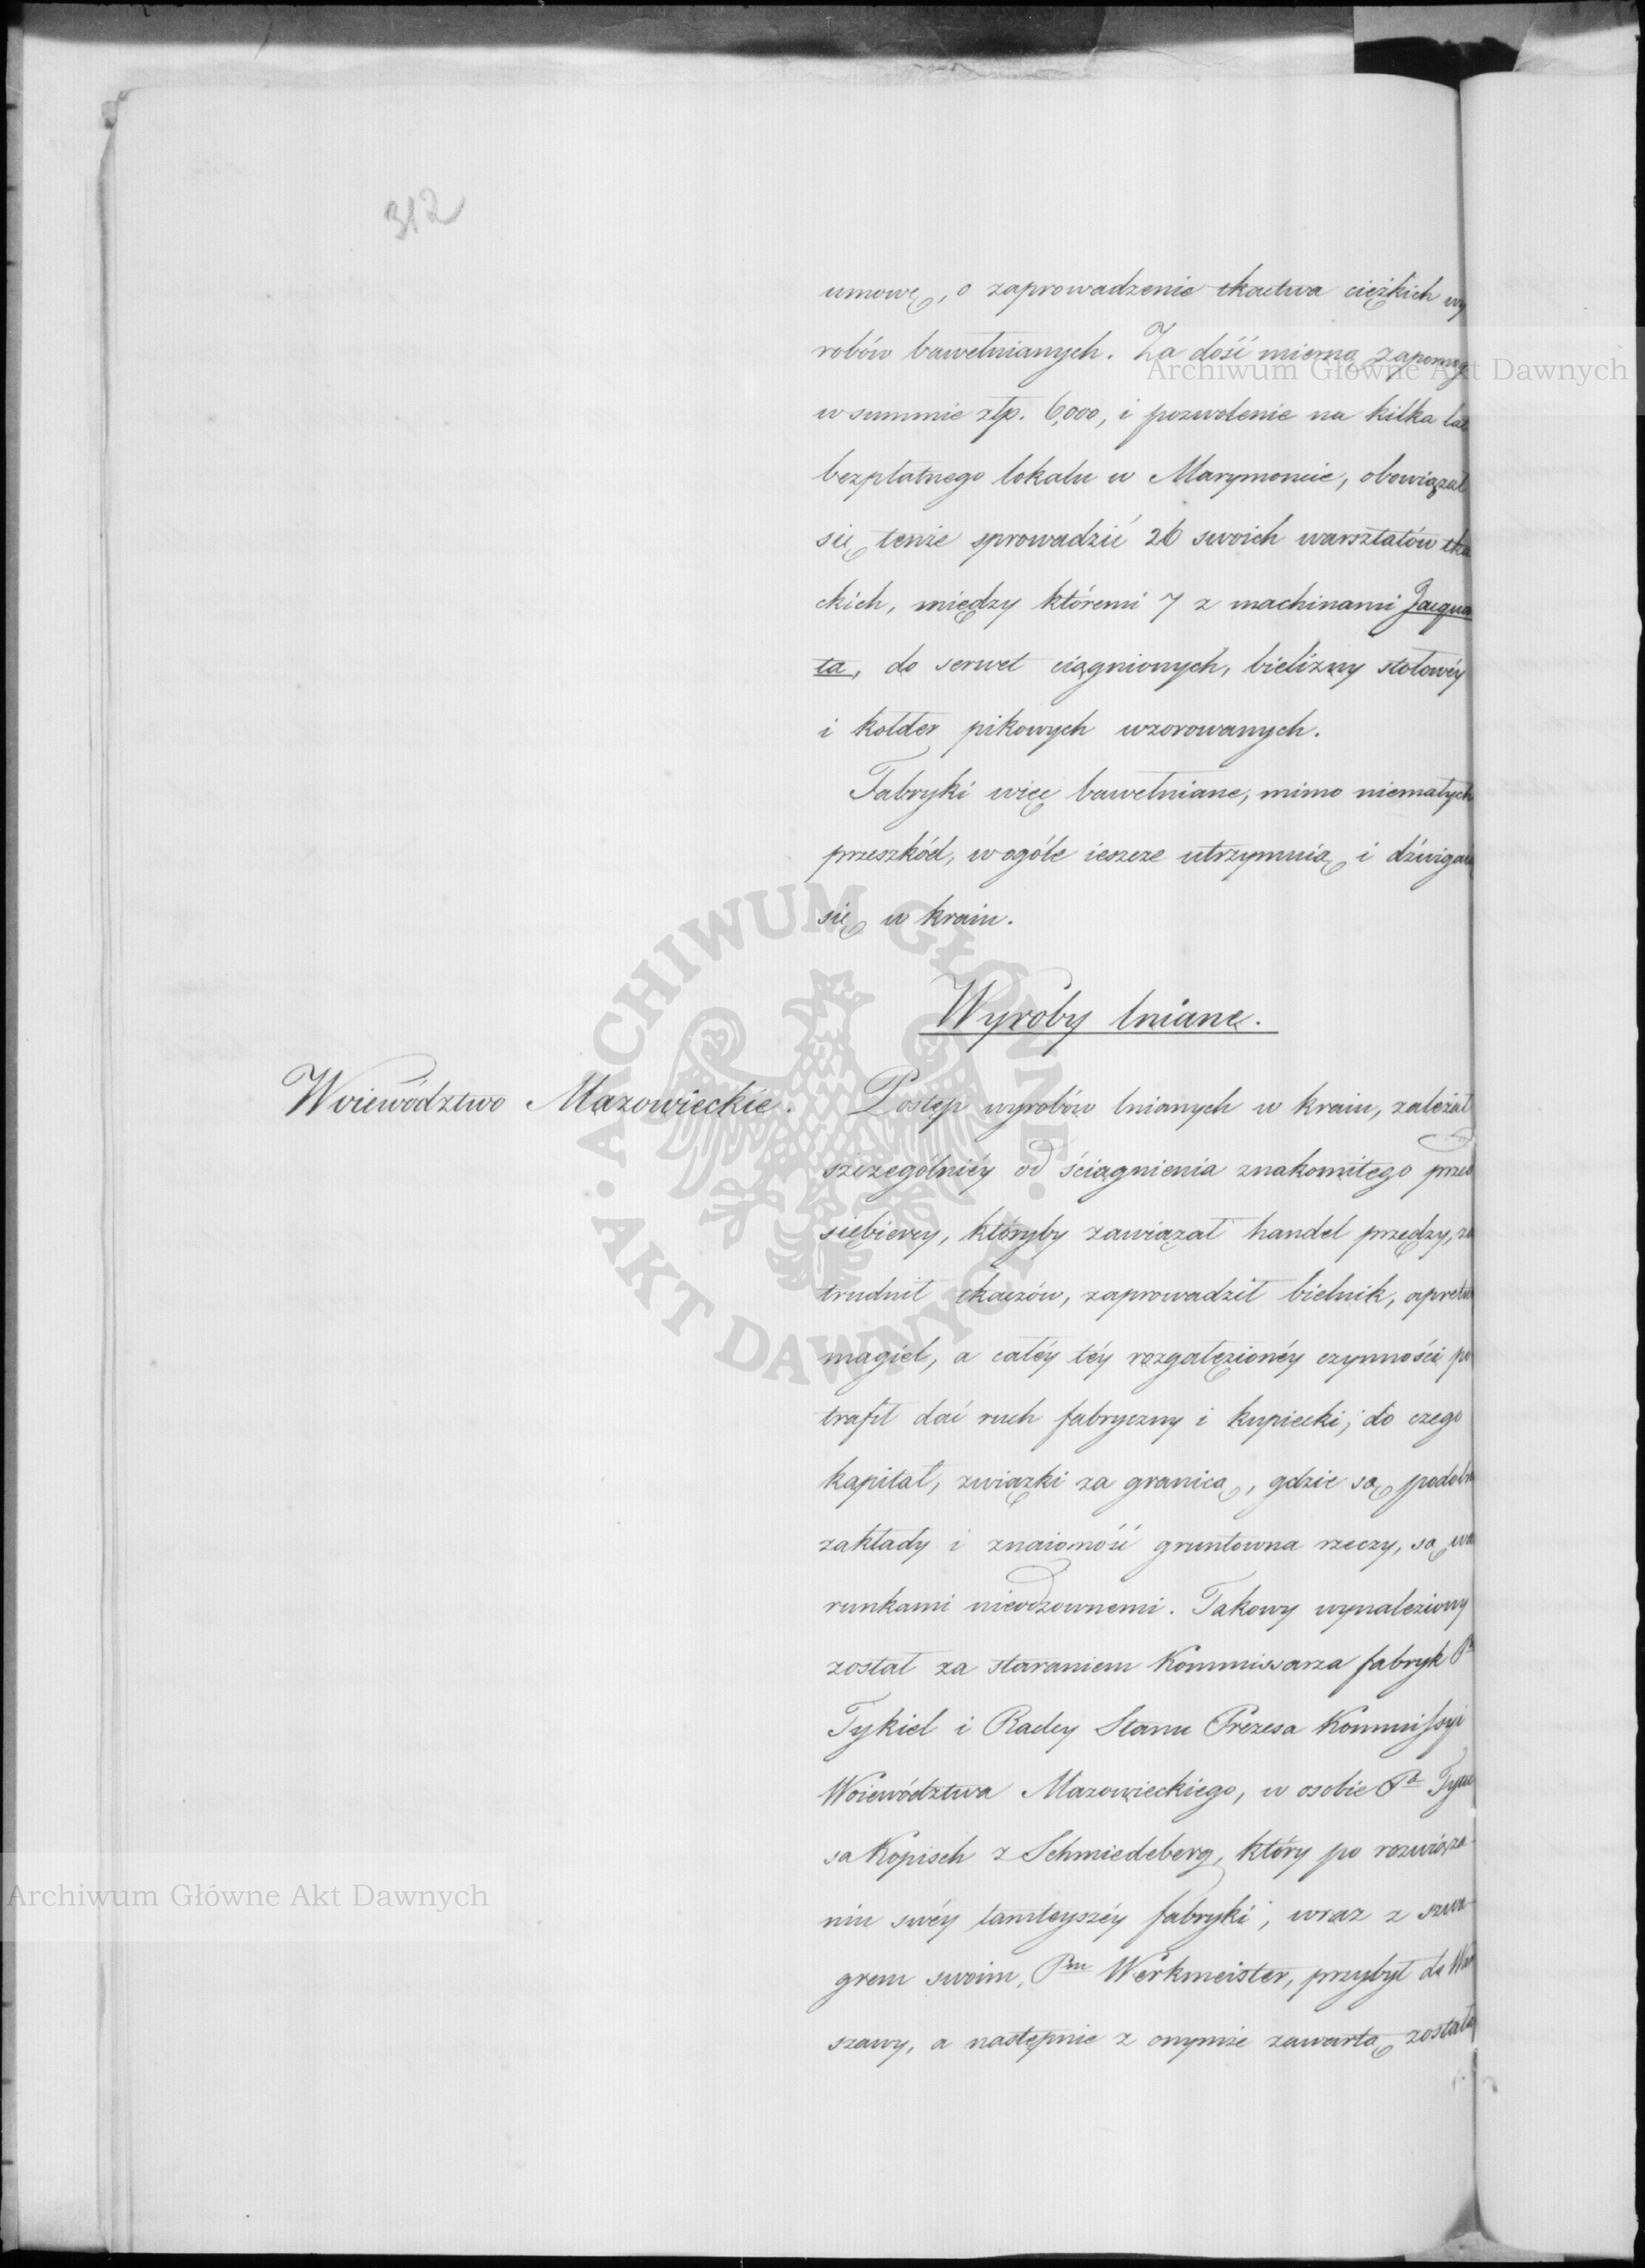 312
umowę, o zaprowadzenie tkactwa ciężkich wy
robów bawełnianych. Za dość mierną zapomog
w summie złp. 6,000, i pozwolenie na kilka lat
bezpłatnego lokalu w Marymoncie, obowiązał
się tenże sprowadzić 26 swoich warsztatów tka
ckich, między któremi 7 z machinami Jacqua
ta, do serwet ciągnionych, bielizny stołowéy
i kołder pikowych wzorowanych.
Fabryki więc bawełniane, mimo niemałych
przeszkód, w ogóle ieszcze utrzymuią i dźwigaią
się w kraiu.
Wyroby lniane.
Woiewództwo Mazowieckie. Postęp wyrobów lnianych w kraiu, zależał
szczególniéy od ściągnienia znakomitego przed
siębiercy, któryby zawiązał handel przędzy, za
trudnił tkaczów, zaprowadził bielnik, apretu
magiel, a całéy téy rozgałęzionéy czynności po
trafił dać ruch fabryczny i kupiecki; do czego
kapitał, związki za granicą, gdzie są podobn
zakłady i znaiomość gruntowna rzeczy, są wa
runkami nieodzownemi. Takowy wynaleziony
został za staraniem Kommissarza fabryk Pa
Tykiel i Radcy Stanu Prezesa Kommissyi
Woiewództwa Mazowieckiego, w osobie Pa
sa Kopisch z Schmiedeberg, który po rozwiąza-
niu swéy tamteyszéy fabryki, wraz z szwa-
grem swoim, Pm Werkmeister, przybył do War
szawy, a następnie z onymże zawartą została
Archiwum Główne Akt Dawnych
Archiwum Główne Akt Dawnych
ARCHIWUM GŁÓWNE · AKT DAWNYCH ·